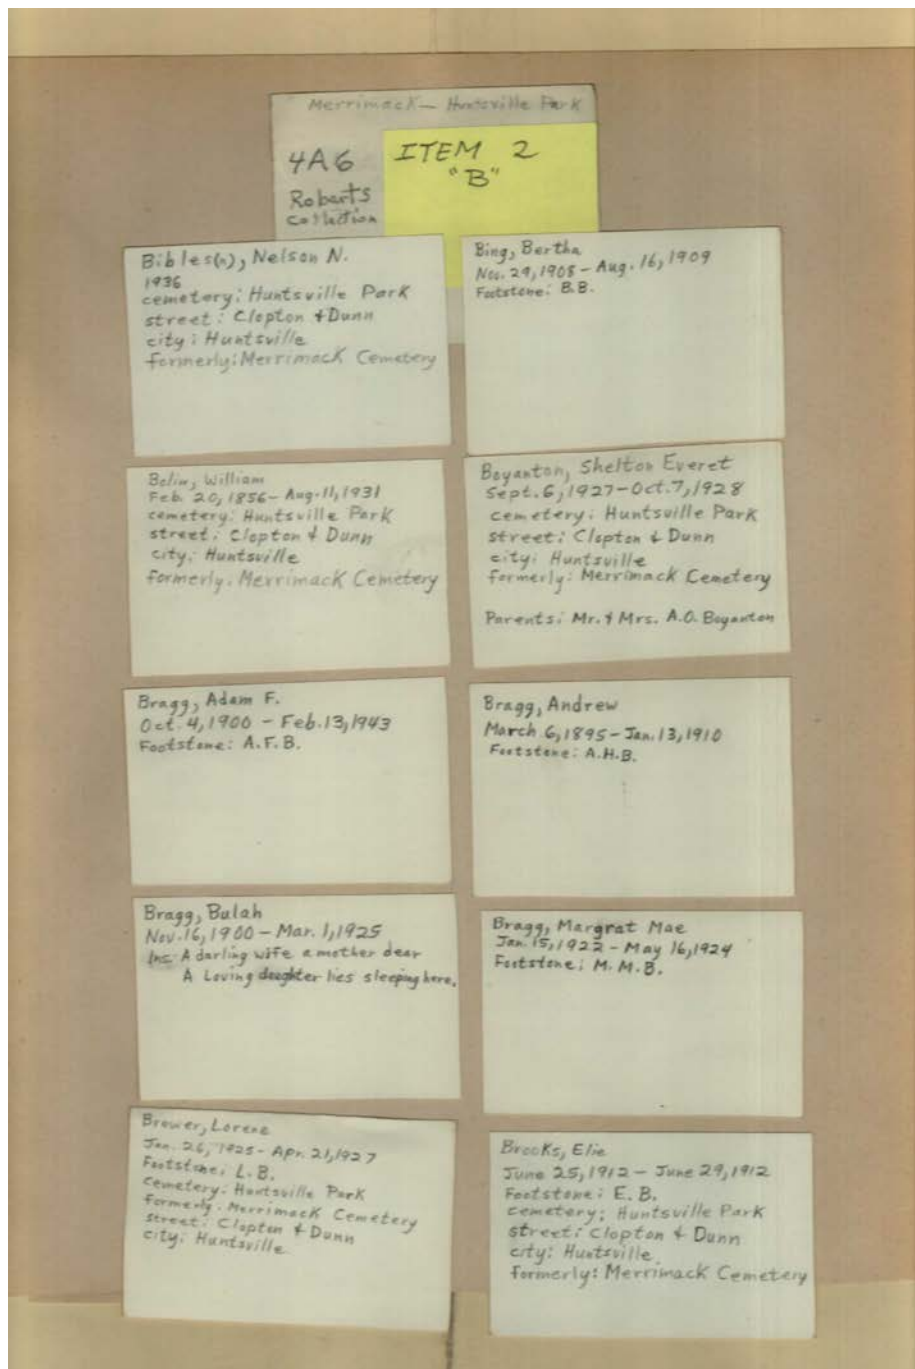 Merrimack — Huntsville Park
4A6
Roberts
Collection
ITEM 2
"B"
Bibles(n), Nelson N.
1936
cemetery: Huntsville Park
street: Clopton & Dunn
city: Huntsville
formerly: Merrimack Cemetery
Bing, Bertha
Nov. 29, 1908 - Aug. 16, 1909
Footstone: B.B.
Bolin, William
Feb. 20, 1856 - Aug. 11, 1931
cemetery: Huntsville Park
street: Clopton & Dunn
city: Huntsville
formerly: Merrimack Cemetery
Boyanton, Shelton Everet
Sept. 6, 1927 - Oct. 7, 1928
cemetery: Huntsville Park
street: Clopton & Dunn
city: Huntsville
formerly: Merrimack Cemetery
Parents: Mr. & Mrs. A.O. Boyanton
Bragg, Adam F.
Oct. 4, 1900 - Feb. 13, 1943
Footstone: A.F.B.
Bragg, Andrew
March 6, 1895 - Jan. 13, 1910
Footstone: A.H.B.
Bragg, Bulah
Nov. 16, 1900 - Mar. 1, 1925
Ins: A darling wife a mother dear
A Loving daughter lies sleeping here.
Bragg, Margrat Mae
Jan. 15, 1922 - May 16, 1924
Footstone: M.M.B.
Brower, Lorene
Jan. 26, 1925 - Apr. 21, 1927
Footstone: L.B.
Cemetery: Huntsville Park
formerly: Merrimack Cemetery
street: Clopton & Dunn
city: Huntsville
Brooks, Elie
June 25, 1912 - June 29, 1912
Footstone: E.B.
cemetery: Huntsville Park
street: Clopton & Dunn
city: Huntsville
formerly: Merrimack Cemetery